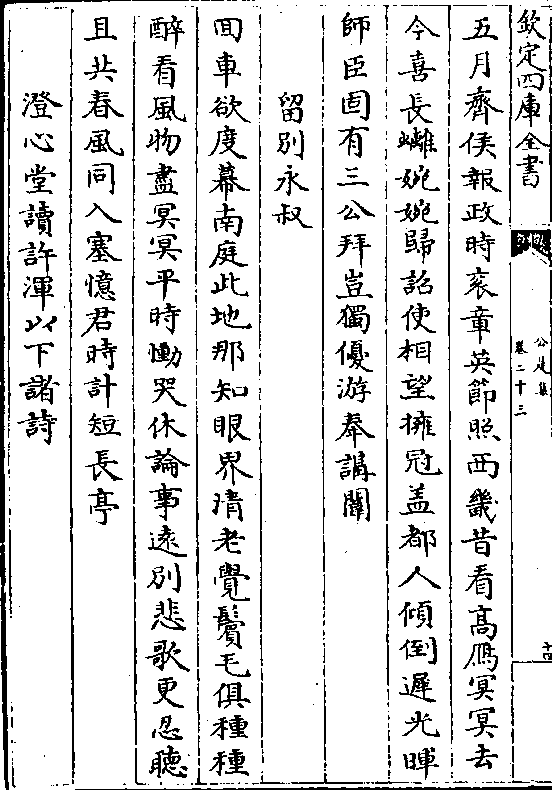 欽定四庫全書
公是集
卷二十三
十四
五月齊侯報政時衮章英節照西畿昔看髙鴈冥冥去
今喜長蠏婉婉歸詔使相望擁冠盖都人傾倒遲光暉
師臣固有三公拜豈獨優游奉講闈
留別永叔
回車欲度幕南庭此地那知眼界清老覺鬢毛俱種種
醉看風物盡冥冥平時慟哭休論事逺別悲歌更忍聽
且共春風同入塞憶君時計短長亭
澄心堂讀許渾以下諸詩